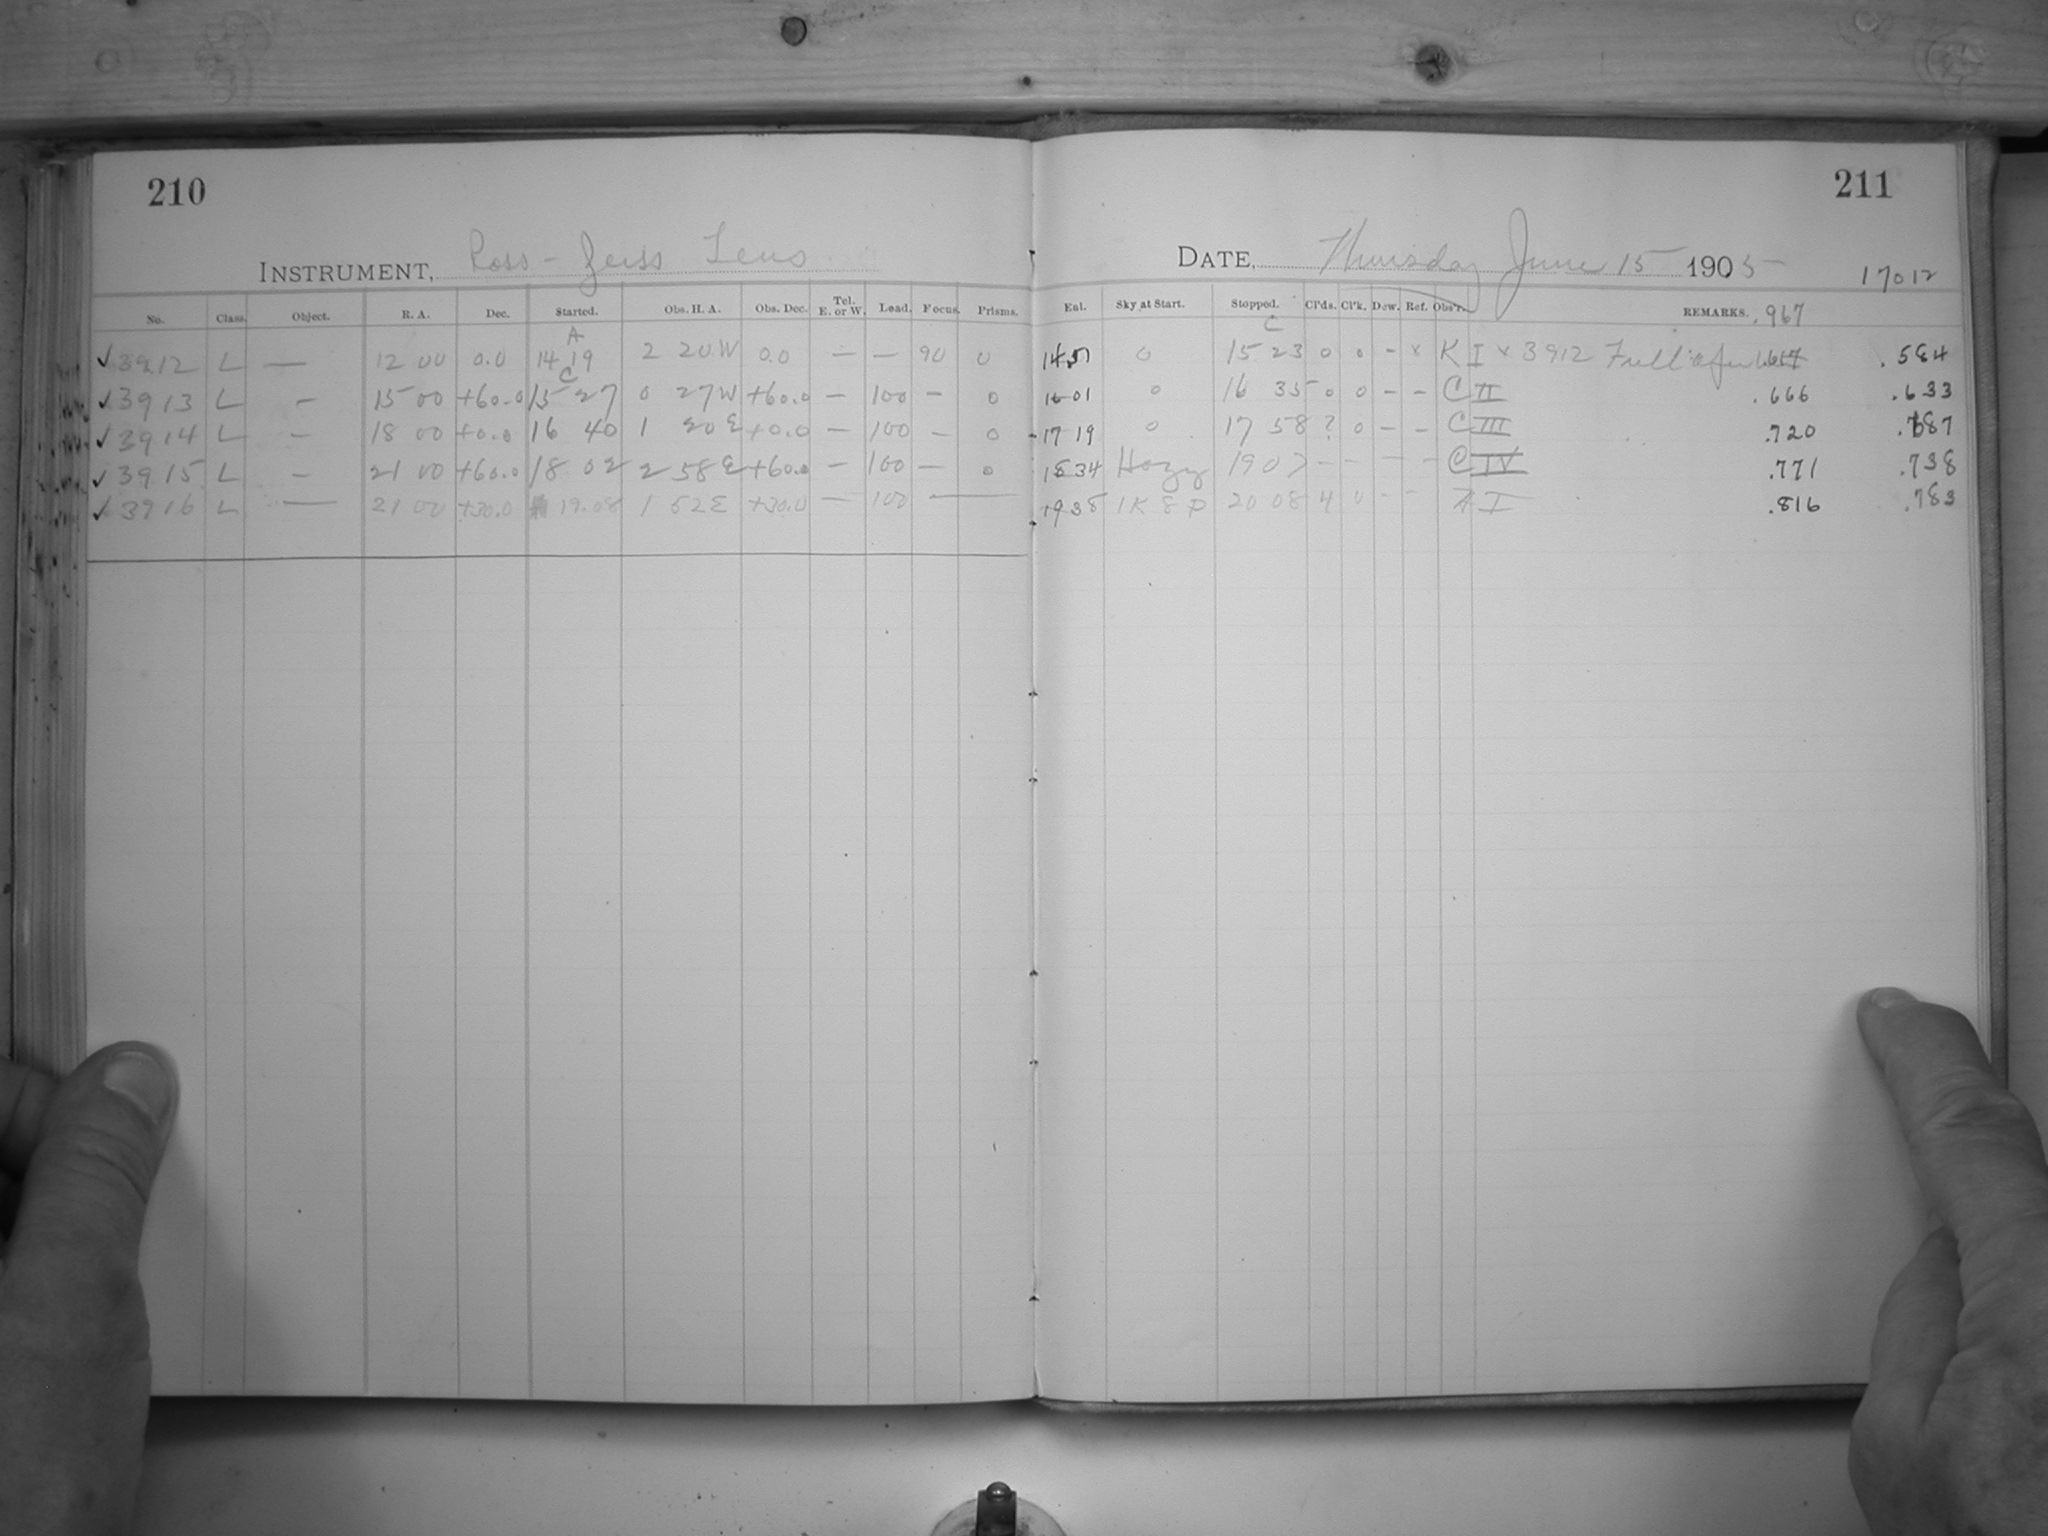 210
INSTRUMENT, Ross-Zeiss Lens
No. Class. Object. R. A. Dec. Started. Obs. H. A. Obs. Dec. Tel. E. or W. Load. Focus. Prisms.
A
✓ 3912 L — 12 00 0.0 14 19 2 20 W 0.0 — — 90 0
C
✓ 3913 L — 15 00 +60.0 15 27 0 27 W +60.0 — 100 — 0
✓ 3914 L — 18 00 +0.0 16 40 1 20 E +0.0 — 100 — 0
✓ 3915 L — 21 00 +60.0 18 02 2 58 E +60.0 — 100 — 0
✓ 3916 L — 21 00 +30.0 19.08 1 52 E +30.0 — 100 —
211
DATE, Thursday June 15 1905
17012
Eal. Sky at Start. Stopped. Cl'ds. Cl'k. Dew. Ref. Obs'r. REMARKS. .967
C
14 51 0 15 23 0 0 - x K I x 3912 .584
16 01 0 16 35 0 0 - - C II .666 .633
17 19 0 17 58 ? 0 - - C III .720 .687
18 34 Hazy 19 07 - - - - C IV .771 .738
19 38 20 08 4 0 - - I .816 .783